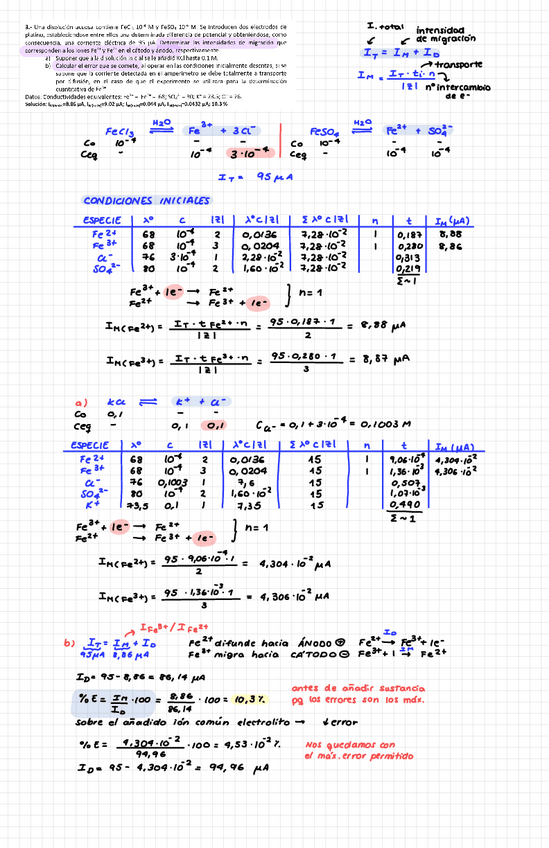 3.- Una disolución acuosa contiene FeCl₃ 10⁻⁴ M y FeSO₄ 10⁻⁴ M. Se introducen dos electrodos de
platino, estableciéndose entre ellos una determinada diferencia de potencial y obteniéndose, como
consecuencia, una corriente eléctrica de 95 μA. Determinar las intensidades de migración que
corresponden a los iones Fe³⁺ y Fe²⁺ en el cátodo y ánodo.
a) Suponer que a la disolución inicial se le añadió KCl hasta 0.1 M.
b) Calcular el error que se comete, al operar en las condiciones inicialmente descritas, si se
supone que la corriente detectada en el amperímetro se debe totalmente a transporte
por difusión, en el caso de que el experimento se utilizara para la determinación
cuantitativa de Fe³⁺
Datos: Conductividades equivalentes: Fe³⁺ = Fe²⁺ = 68; SO₄²⁻ = 80; K⁺ = 73.5; Cl⁻ = 76.
I. total
intensidad
de migración
I_T = I_M + I_D
transporte
I_M = I_T · ti · n / |z|
nº intercambio
de e⁻
FeCl₃ ⇌ (H₂O) Fe³⁺ + 3Cl⁻
Co 10⁻⁴ - -
Ceq - 10⁻⁴ 3·10⁻⁴
FeSO₄ ⇌ (H₂O) Fe²⁺ + SO₄²⁻
Co 10⁻⁴ - -
Ceq - 10⁻⁴ 10⁻⁴
I_T = 95 μA
CONDICIONES INICIALES
ESPECIE λ° c |z| λ°c|z| Σ λ°c|z| n t I_M (μA)
Fe²⁺ 68 10⁻⁴ 2 0,0136 7,28·10⁻² 1 0,187 8,88
Fe³⁺ 68 10⁻⁴ 3 0,0204 7,28·10⁻² 1 0,280 8,86
Cl⁻ 76 3·10⁻⁴ 1 2,28·10⁻² 7,28·10⁻² 0,313
SO₄²⁻ 80 10⁻⁴ 2 1,60·10⁻² 7,28·10⁻² 0,219
Σ~1
Fe³⁺ + 1e⁻ → Fe²⁺
Fe²⁺ → Fe³⁺ + 1e⁻ } n = 1
I_M(Fe²⁺) = I_T · t Fe²⁺ · n / |z| = 95·0,187·1 / 2 = 8,88 μA
I_M(Fe³⁺) = I_T · t Fe³⁺ · n / |z| = 95·0,280·1 / 3 = 8,87 μA
a) KCl ⇌ K⁺ + Cl⁻
Co 0,1 - -
Ceq - 0,1 0,1
C_Cl⁻ = 0,1 + 3·10⁻⁴ = 0,1003 M
ESPECIE λ° c |z| λ°c|z| Σ λ°c|z| n t I_M (μA)
Fe²⁺ 68 10⁻⁴ 2 0,0136 15 1 9,06·10⁻⁴ 4,304·10⁻²
Fe³⁺ 68 10⁻⁴ 3 0,0204 15 1 1,36·10⁻³ 4,306·10⁻²
Cl⁻ 76 0,1003 1 7,6 15 0,507
SO₄²⁻ 80 10⁻⁴ 2 1,60·10⁻² 15 1,07·10⁻³
K⁺ 73,5 0,1 1 7,35 15 0,490
Σ~1
Fe³⁺ + 1e⁻ → Fe²⁺
Fe²⁺ → Fe³⁺ + 1e⁻ } n = 1
I_M(Fe²⁺) = 95 · 9,06·10⁻⁴ · 1 / 2 = 4,304·10⁻² μA
I_M(Fe³⁺) = 95 · 1,36·10⁻³ · 1 / 3 = 4,306·10⁻² μA
I Fe³⁺ / I Fe²⁺
b) I_T = I_M + I_D
95μA 8,86 μA
Fe²⁺ difunde hacia ÁNODO ⊕ Fe²⁺ → (I_D) Fe³⁺ + 1e⁻
Fe³⁺ migra hacia CÁTODO ⊖ Fe³⁺ + 1 → (I_M) Fe²⁺
I_D = 95 - 8,86 = 86,14 μA
% E = I_M / I_D · 100 = 8,86 / 86,14 · 100 = 10,3 %
antes de añadir sustancia
pq los errores son los más.
sobre el añadido ión común electrolito → ↓error
% E = 4,304·10⁻² / 94,96 · 100 = 4,53·10⁻² %
Nos quedamos con
el más. error permitido
I_D = 95 - 4,304·10⁻² = 94,96 μA